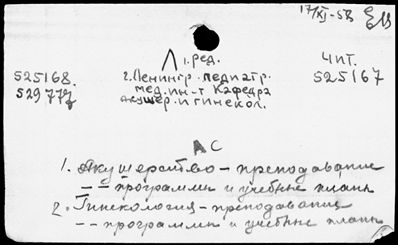 17/XI-58
1. ред.
525168.
529777
г. Ленингр. педиатр.
мед. ин-т Кафедра
акушер. и гинекол.
Чит.
525167
АС
1. Акушерство – преподавание
– – программы и учебные планы
2. Гинекология – преподавания
– – программы и учебные планы